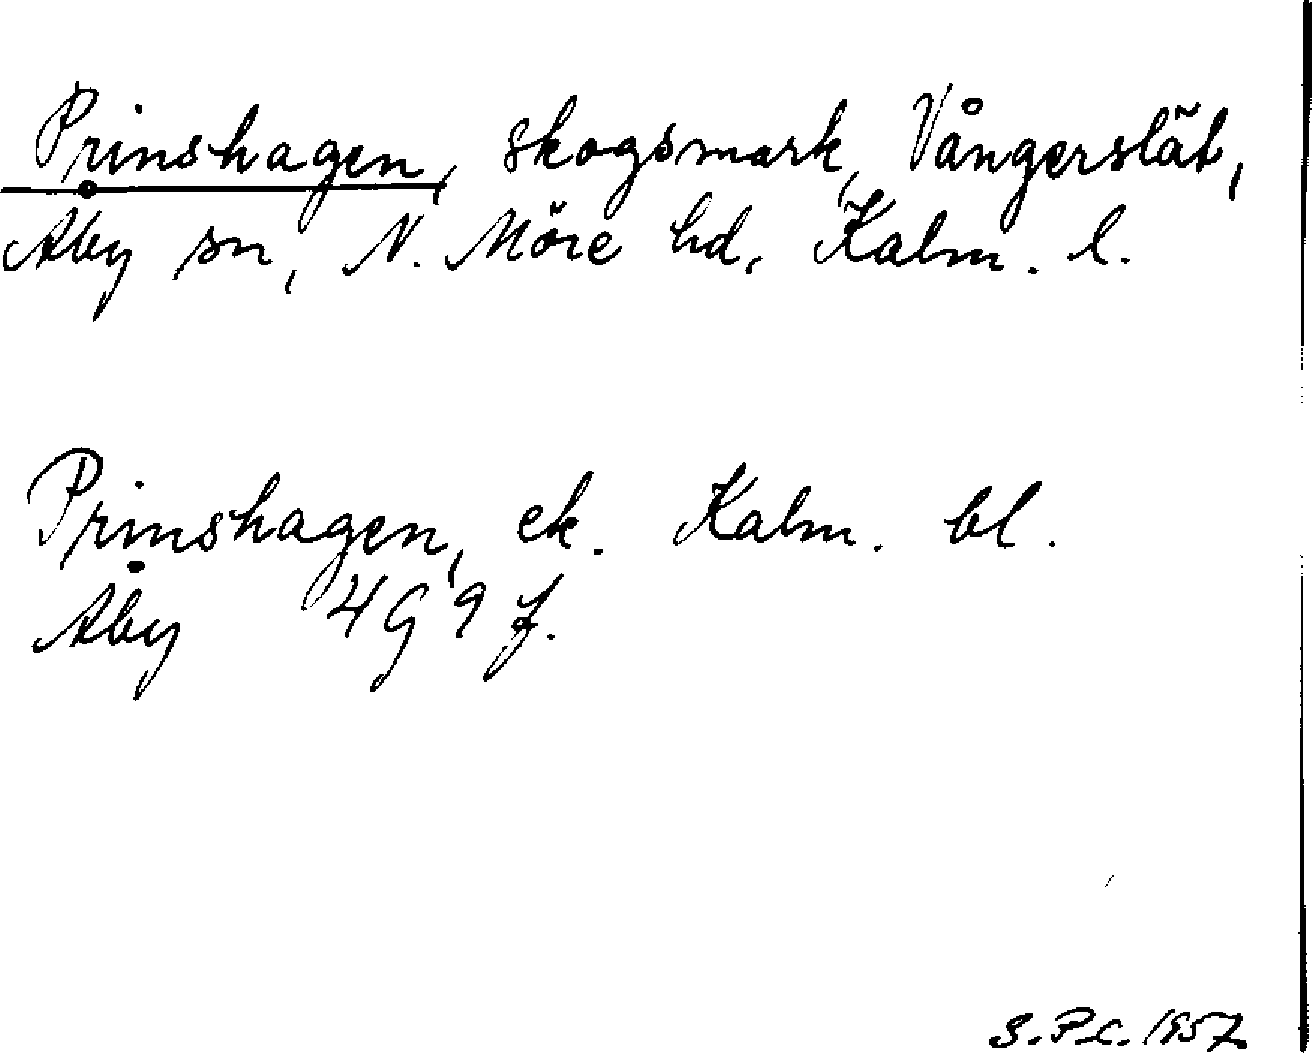 Prinshagen, skogsmark, Vångerslät,
Åby sn, N. Möre hd, Kalm. l.
Prinshagen, ek. Kalm. bl.
Åby 4G9f.
S.P.C. 1957.